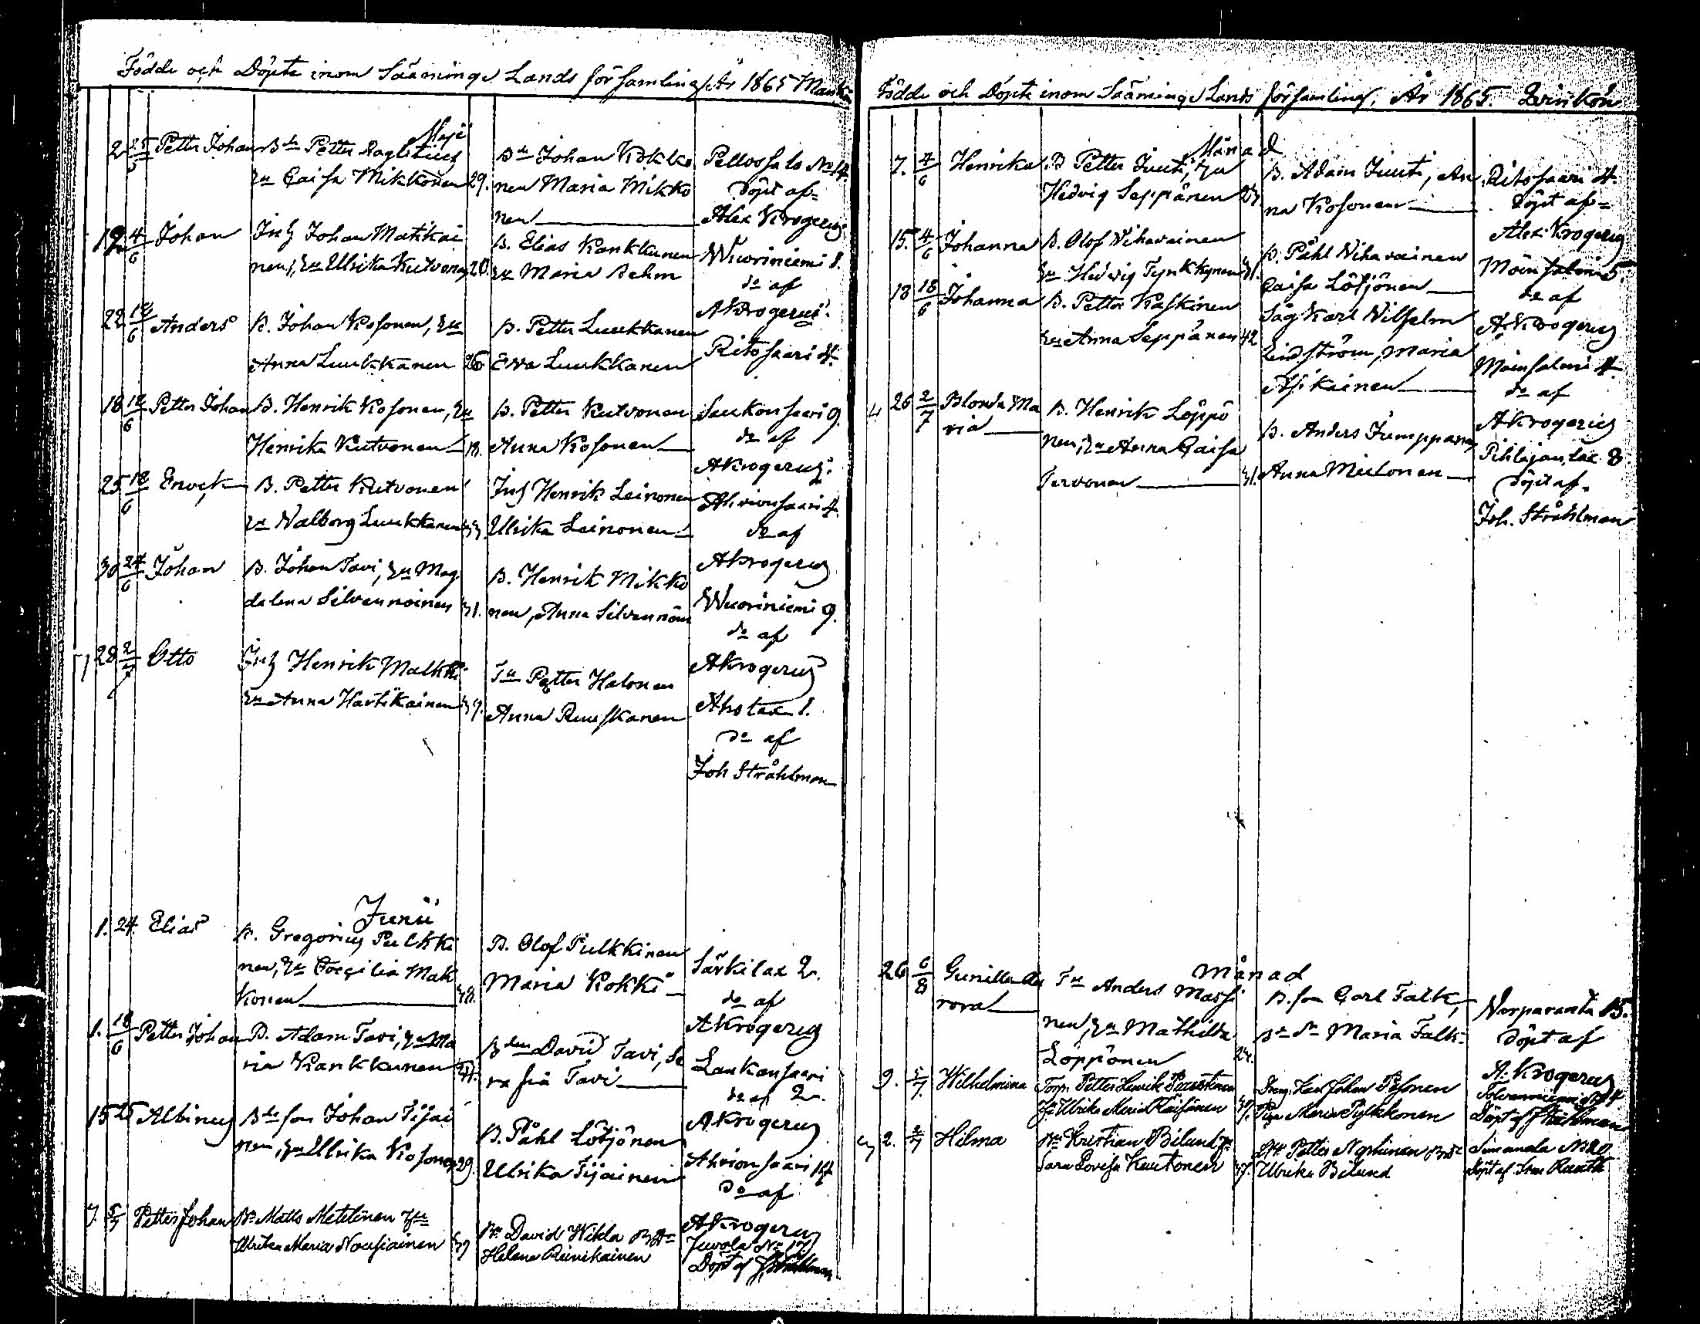 Födde och Döpte inom Sääminge Lands församling År 1865 Mankön
Maji
2 25/5 Petter Johan Bde Petter Laglstius
Hu Caisa Mikkonen 29.
Bde Johan Kokko
nen Maria Mikko
nen
Pellossalo No 14.
Döpt af
Alex Krogerus
19 4/6 Johan Inh Johan Matikai
nen, Hu Ulrika Kutvonen 20.
B. Elias Kankkunen
Hu Maria Aehm
Wuoriniemi 1.
do af
A Krogerus
22 18/6 Anders B. Johan Kosonen, Hu
Anna Luukkanen 26
B. Petter Luukkanen
Ewa Luukkanen
Ritosaari 4.
18 18/6 Petter Johan B. Henrik Kosonen, Hu
Henrika Kutvonen
B. Petter Kutvonen
Anna Kosonen
Laukonsaari 9.
do af
A Krogerus
25 18/6 B. Petter Kutvonen
Hu Valborg Luukkanen 33
Inh Henrik Leinonen
Ulrika Leinonen
Ahvionsaari 4.
do af
A Krogerus
30 24/6 Johan B. Johan Tavi, Hu Mag
dalena Silvennoinen 31.
B. Henrik Mikko
nen, Anna Silvennoin
Wuoriniemi 9.
do af
A Krogerus
28 2/7 Otto Inh Henrik Malkki
Hu Anna Hartikainen 39.
Petter Halonen
Anna Ruuskanen
Ahotax 1.
do af
Joh Stråhlman
Junii
1. 24 Elias B. Gregorius Pulkki
nen, Hu Coecilia Mak
konen 38.
B. Olof Pulkkinen
Maria Kokki
Särkilax 2.
do af
A Krogerus
1. 18/6 Petter Johan B. Adam Tavi, Hu Ma
ria Kankkunen
Bden David Tavi, Se
rafia Tavi
Laukansaari
do af 2.
A Krogerus
15 25 Albinus Bde son Johan Tijai
nen, Hu Ulrika Kosonen 29.
B. Påhl Lötjönen
Ulrika Tijainen
Ahvionsaari 14
do af
A Krogerus
7. 5/7 Petter Johan Bde Matts Metelinen Hu
Ulrika Maria Nousiainen 39
Bde David Wikla
Helena Reinikainen
Juvola No 17
Döpt af J. Stråhlman
Födde och Döpte inom Sääminge Lands församling, År 1865. Qvinkön
Månad
7. 4/6 Henrika B Petter Juuti, Hu
Hedvig Seppänen
B. Adam Juuti, An
na Kosonen
Ritosaari 4.
Döpt af
Alex Krogerus
15. 4/6 Johanna B. Olof Nihavainen
Hu Hedvig Tynkkynen 31.
B. Påhl Nihavainen
Caisa Lötjönen
Moinsalmi 5.
do af
A. Krogerus
18 18/6 Johanna B. Petter Kaskinen
Hu Anna Seppänen 42
Såg Karl Wilhelm
Lindström, Maria
Asikainen
Moinsalmi 4.
do af
A Krogerus
26 2/7 Blonda Ma
ria
B. Henrik Löppö
nen, Hu Anna Caisa
Tervonen 31.
B. Anders Jumppanen
Anna Mielonen
Pihlajanlax 8
Döpt af
Joh. Stråhlman
Månad
26 6/8 Gunilla Au
rora
Anders Massi
nen, Hu Mathilda
Löppönen 24.
B. son Carl Falk,
Maria Falk
Norparanta 15.
Döpt af
A. Krogerus
9. 5/7 Wilhelmina Torp. Petter Henrik Puustinen
Hu Ulrika Maria Käihönen 37.
Dreng Lars Johan Pesonen
Piga Maria Pulkkonen
Tolvanniemi No 4
Döpt af J. Stråhlman
2. 2/7 Hilma Kristian Bilund Hu
Sara Lovisa Kautonen 37.
Petter Nyrhinen
Ulrika Bilund
Simanala No 20
Döpt af